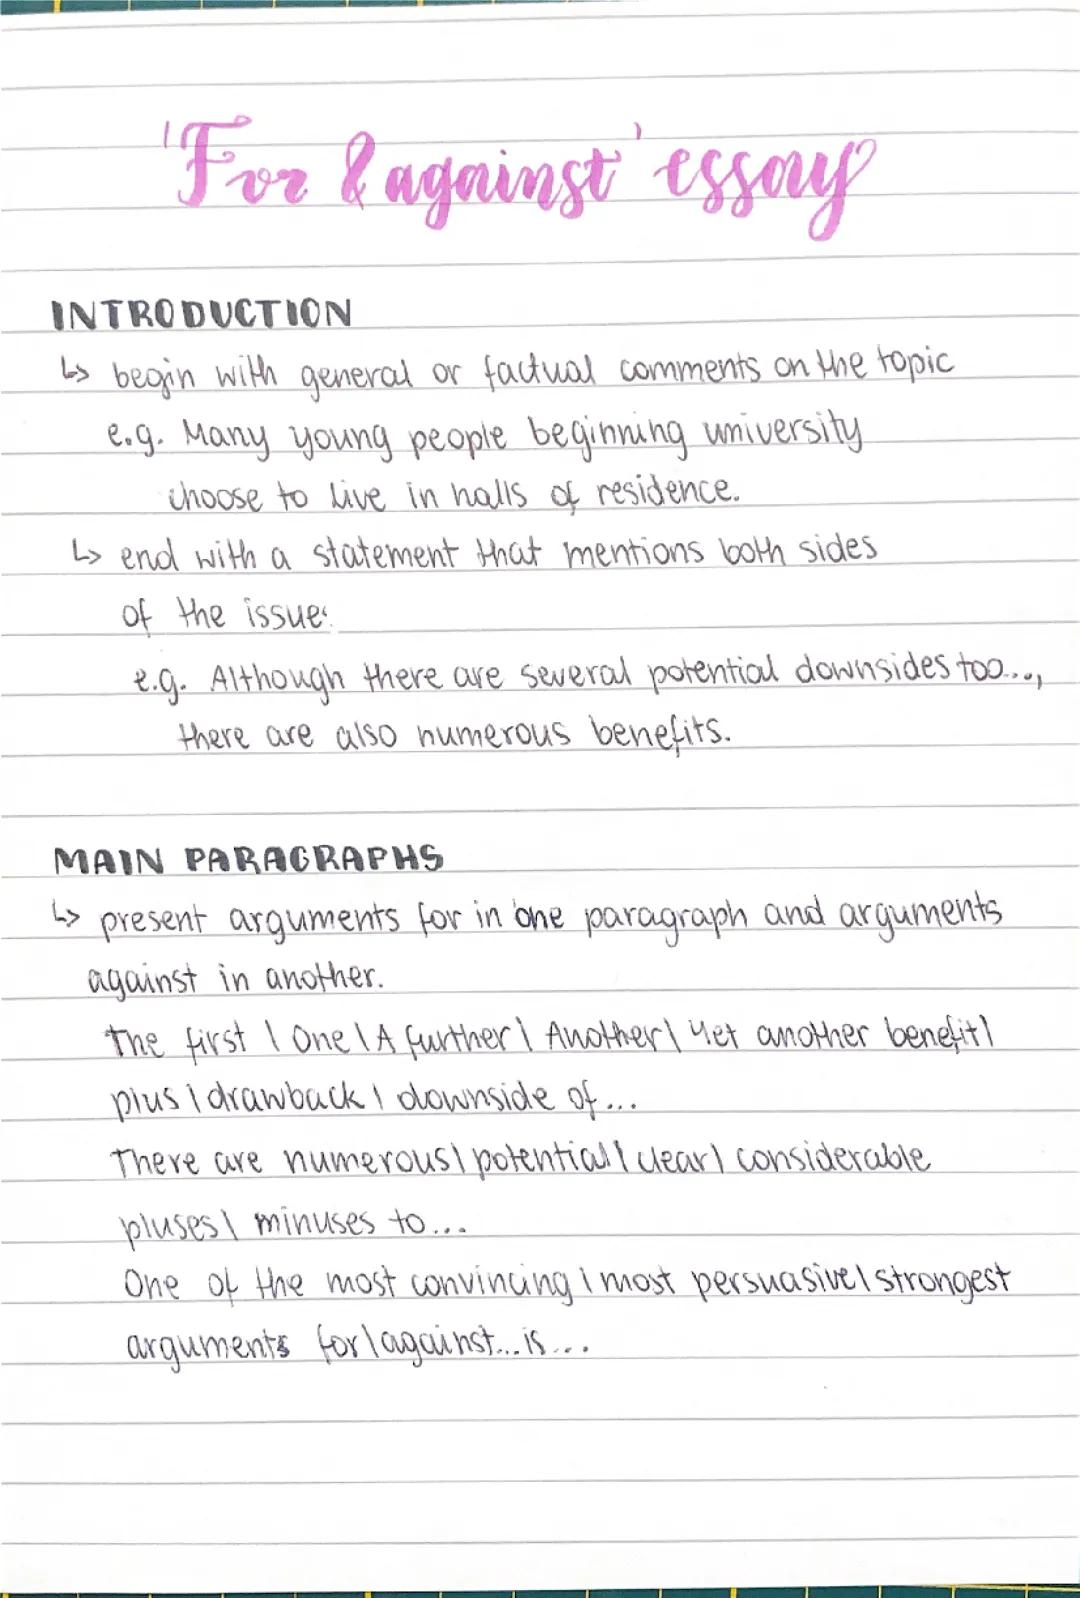 'For & against' essay
INTRODUCTION
↳ begin with general or factual comments on the topic
e.g. Many young people beginning university
choose to live in halls of residence.
↳ end with a statement that mentions both sides
of the issue:
e.g. Although there are several potential downsides too...,
there are also numerous benefits.
MAIN PARAGRAPHS
↳ present arguments for in one paragraph and arguments
against in another.
The first \ One \ A further \ Another \ Yet another benefit \
plus \ drawback \ downside of...
There are numerous \ potential \ clear \ considerable
pluses \ minuses to...
One of the most convincing \ most persuasive \ strongest
arguments for \ against... is...